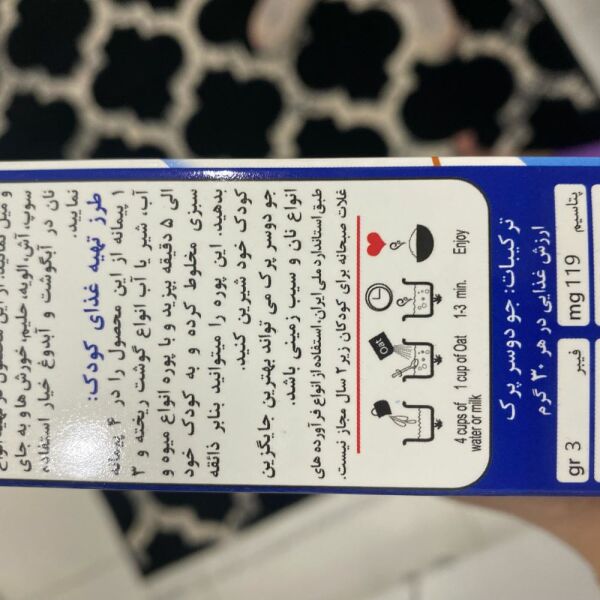 و میل نمایند. از این محصول در تهیه انواع
سوپ، آش، الویه، حلیم، خورش ها و به جای
نان در آبگوشت و آبدوغ خیار استفاده
نمایید.
طرز تهیه غذای کودک:
۱ پیمانه از این محصول را در ۴ پیمانه
آب، شیر یا آب انواع گوشت ریخته و ۳
الی ۵ دقیقه بپزید و با پوره انواع میوه و
سبزی مخلوط کرده و به کودک خود
بدهید. این پوره را میتوانید بنابر ذائقه
کودک خود شیرین کنید.
جو دوسر پرک می تواند بهترین جایگزین
انواع نان و سیب زمینی باشد.
طبق استاندارد ملی ایران، استفاده از انواع فرآورده های
غلات صبحانه برای کودکان زیر ۲ سال مجاز نیست.
Oat
4 cups of water or milk
1 cup of Oat
1-3 min.
Enjoy
ترکیبات: جو دوسر پرک
ارزش غذایی در هر ۳۰ گرم
فیبر
gr 3
پتاسیم
mg 119